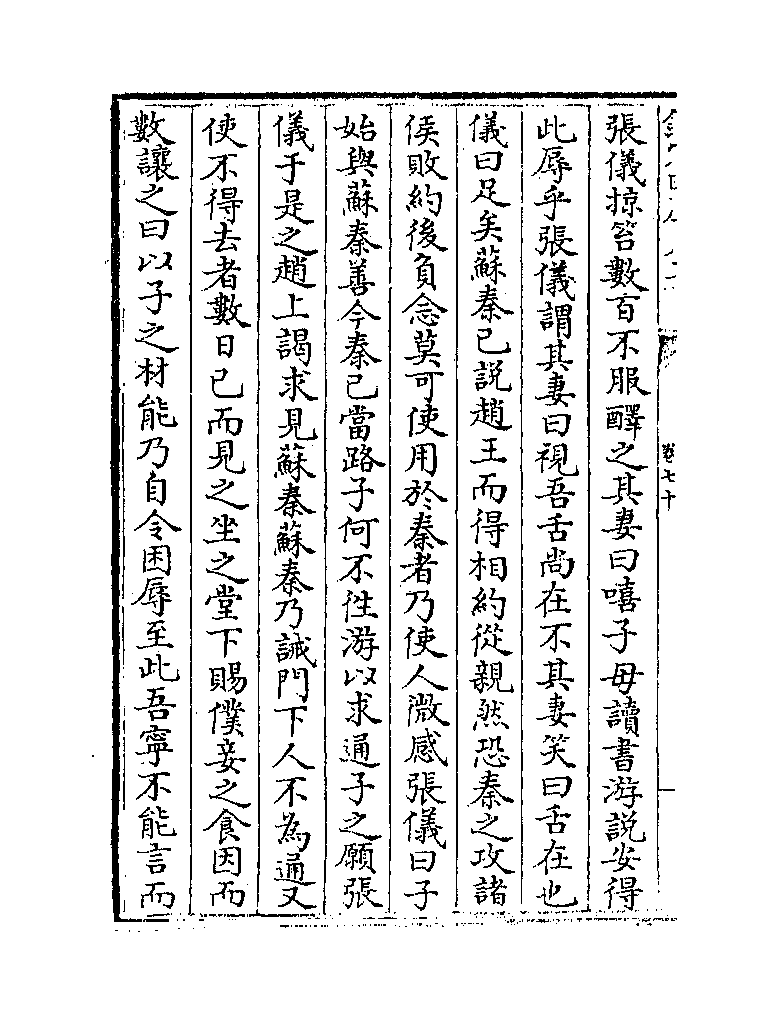 卷七十
張儀掠笞數百不服醳之其妻曰嘻子毋讀書游說安得
此辱乎張儀謂其妻曰視吾舌尚在不其妻笑曰舌在也
儀曰足矣蘇秦已說趙王而得相約從親然恐秦之攻諸
侯敗約後負念莫可使用於秦者乃使人微感張儀曰子
始與蘇秦善今秦已當路子何不往游以求通子之願張
儀于是之趙上謁求見蘇秦蘇秦乃誡門下人不為通又
使不得去者數日已而見之坐之堂下賜僕妾之食因而
數讓之曰以子之材能乃自令困辱至此吾寧不能言而